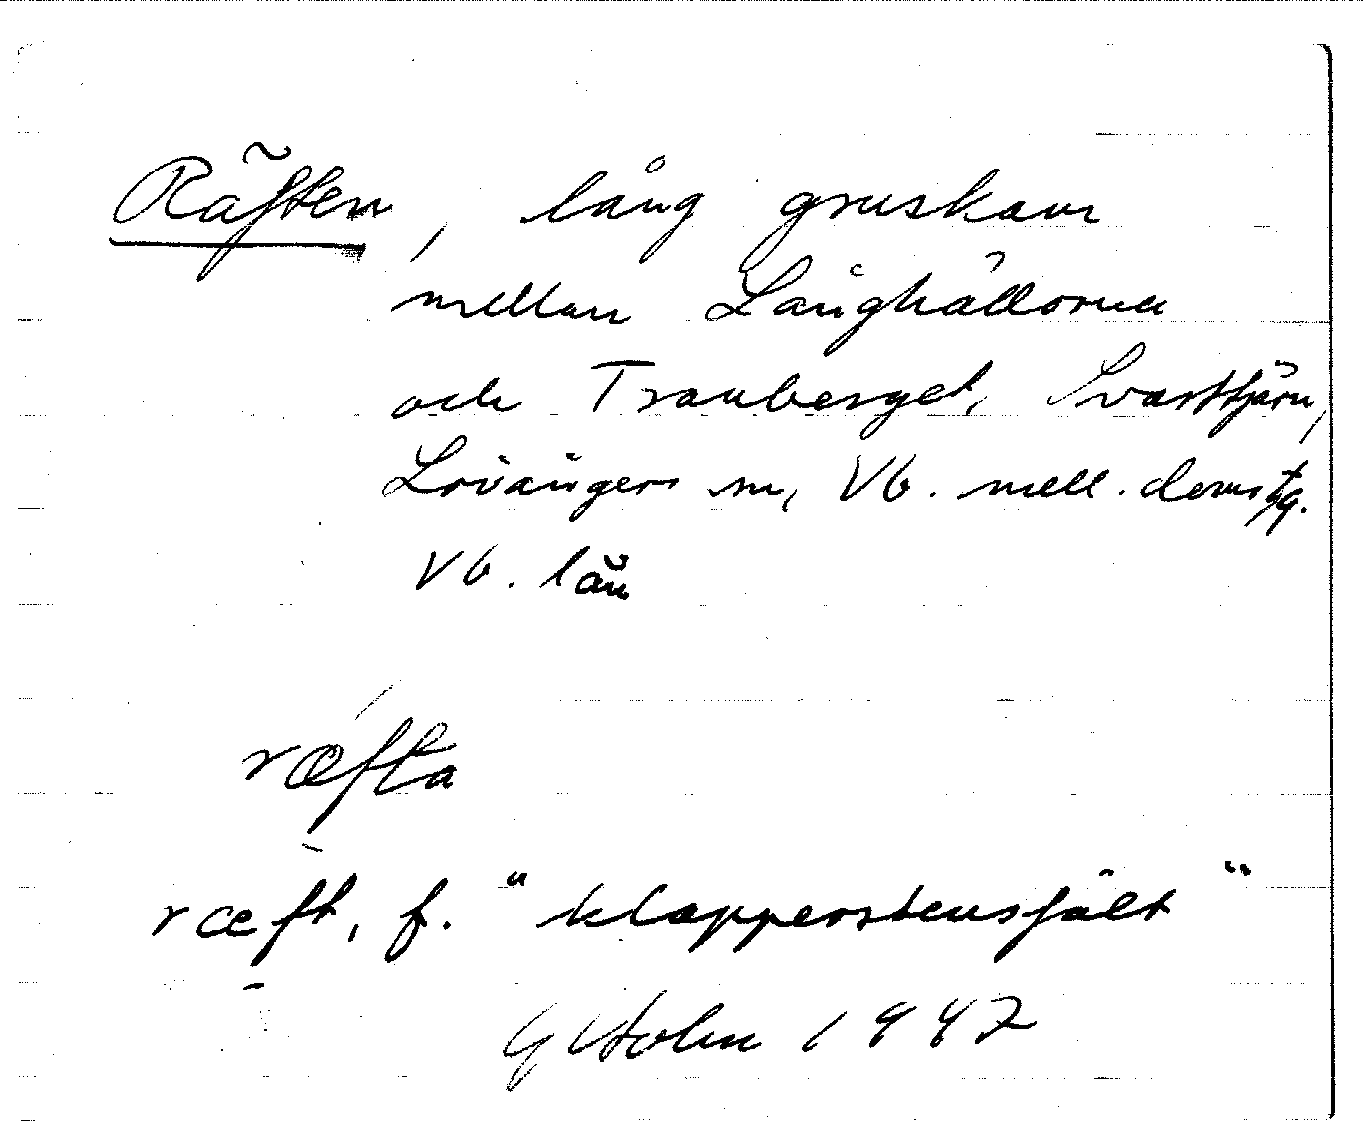 Räften, lång gruskam
mellan Långhällorna
och Tranberget, Svarttjärn,
Lövångers sn, Vb. mell. domstg.
Vb. län
ræfta
ræft, f. "klapperstensfält"
G Holm 1947